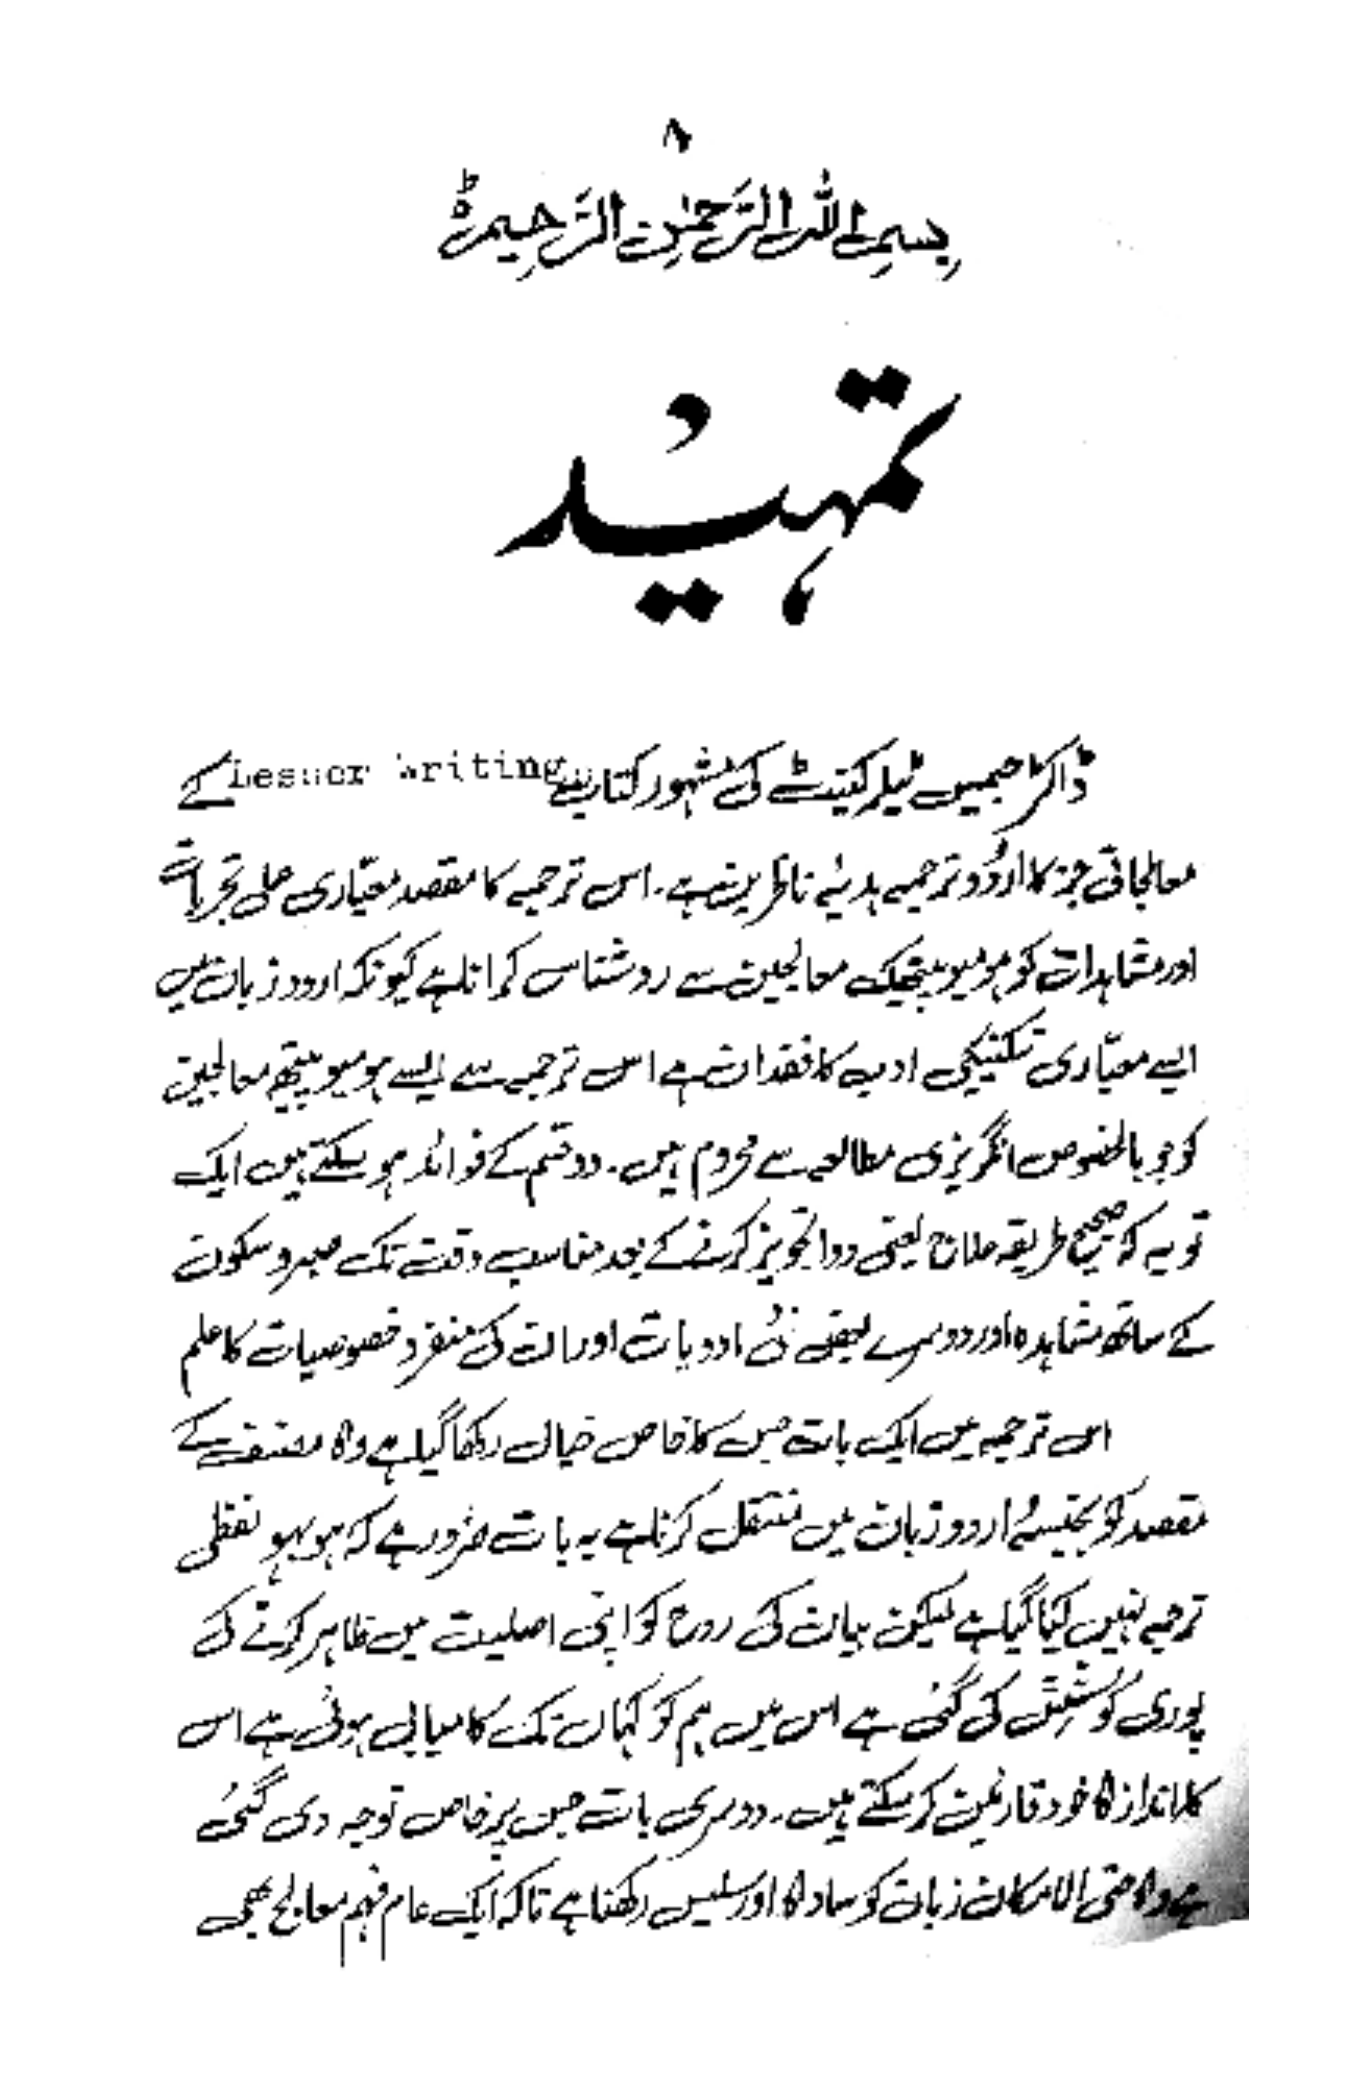 ۸
بِسمِ اللهِ الرَّحمٰنِ الرَّحِيمِ ط
تمہید
ڈاکٹر جیمس ٹیلر کینٹ کی مشہور کتاب Lesser Writing کے
معالجاتی جز کا اردو ترجمہ ہدیۂ ناظرین ہے۔ اس ترجمہ کا مقصد معیّاری علمی تجربات
اور مشاہدات کو ہومیوپیتھیک معالجین سے روشناس کرانا ہے کیونکہ اردو زبان میں
ایسے معیّاری تکنیکی ادب کا فقدان ہے اس ترجمہ سے ایسے ہومیوپیتھ معالجین
کو جو بالخصوص انگریزی مطالعہ سے محروم ہیں۔ دو قسم کے فوائد ہو سکتے ہیں ایک
تو یہ کہ صحیح طریقہ علاج یعنی دوا تجویز کرنے کے بعد مناسب وقت تک صبر و سکون
کے ساتھ مشاہدہ اور دوسرے بعض نئی ادویات اور ان کی منفرد خصوصیات کا علم
اس ترجمہ میں ایک بات جس کا خاص خیال رکھا گیا ہے وہ مصنف کے
مقصد کو بجنسہٖ اردو زبان میں منتقل کرنا ہے یہ بات ضرور ہے کہ ہو بہو لفظی
ترجمہ نہیں کیا گیا ہے لیکن بیان کی روح کو اپنی اصلیت میں ظاہر کرنے کی
پوری کوشش کی گئی ہے اس میں ہم کو کہاں تک کامیابی ہوئی ہے اس
کا اندازہ خود قارئین کر سکتے ہیں۔ دوسری بات جس پر خاص توجہ دی گئی
ہے وہ حتی الامکان زبان کو سادہ اور سلیس رکھنا ہے تاکہ ایک عام فہم معالج بھی